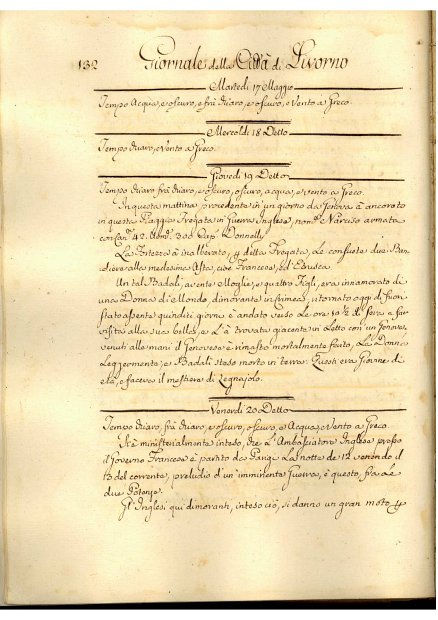 132 Giornale della Città di Livorno
Martedì 17 Maggio
Tempo Acqua, e oscuro, e frà chiaro, e oscuro, e Vento a Greco.
Mercoldì 18 Detto
Tempo chiaro, e Vento a Greco.
Giovedì 19 Detto
Tempo chiaro frà chiaro, e oscuro, oscuro, acqua, e vento a Greco.
In questa mattina procedente in un giorno da Genova à ancorato
in questa Piaggia Fregata in Guerra Inglese, nom.ª Narciso armata
con Can.ⁱ 42. Uom.ⁱ 300 Cap.º Donnelly
La Fortezza à inalberato, p della Fregata, Le consuete due Ban
diere alla medesima Asta, cioè Francese, ed Etrusca.
Un tal Badali, avente Moglie, e quattro Figli, era innamorato di
una Donna di Mondo, dimorante in Crimea, ritornato oggi di fuori
stato assente quindici giorni è andato verso Le ore 10 ½ di sera a far
visita alla sua bella, e L'à trovata giacente in Letto con un Genovese,
venuti alle mani il Genovese è rimasto mortalmente ferito, La Donna
Leggermente, e Badali steso morto in terra. Questi era Giovane di
età, e faceva il mestiere di Legnajolo.
Venerdì 20 Detto
Tempo chiaro, frà chiaro, e oscuro, oscuro, e Acqua, e Vento a Greco.
Si è ministerialmente inteso, che L'Ambasciatore Inglese presso
il Governo Francese è partito da Parigi La notte de' 12 venendo il
13 del corrente, preludio d'un' imminente Guerra, è questo, fra Le
due Potenze.
Gl'Inglesi qui dimoranti, inteso ciò, si danno un gran moto p